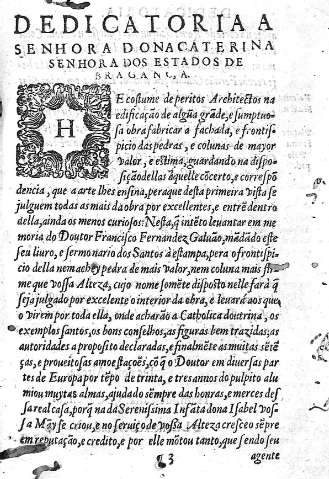 DEDICATORIA A
SENHORA DONA CATERINA
SENHORA DOS ESTADOS DE
BRAGANÇA.
HE costume de peritos Architectos na
edificação de algũa grãde, e sumptuo-
sa obra fabricar a fachada, e frontis-
picio das pedras, e colunas de mayor
valor, e estima, guardando na dispo-
siçaõ dellas àquelle cõcerto, e correspõ
dencia, que a arte lhes ensina, pera que desta primeira vista se
julguem todas as mais da obra por excellentes, e entrē dentro
della, ainda os menos curiosos: Nesta, q̃ intēto levantar em me-
moria do Doutor Francisco Fernandez Galuão, mãdãdo este
seu livro, e sermonario dos Santos à estampa, pera o frontis-
picio della nem achey pedra de mais valor, nem coluna mais fir-
me que vossa Alteza, cujo nome somēte disposto nelle fará q̃
seja julgado por excellente o interior da obra, e levará aos que
o virem por toda ella, onde acharão a Catholica doutrina, os
exemplos santos, os bons conselhos, as figuras bem trazidas; as
autoridades a proposito declaradas, e finalmēte as muitas sētē-
ças, e proueitosas amoestações, cõ q̃ o Doutor em diversas par
tes de Europa por tēpo de trinta, e tres annos do pulpito alu
miou muytas almas, ajudado sēmpre das honras, e merces des
sa real casa, porq̃ na da Serenissima Infãta dona Isabel vos-
sa Mãy se criou, e no serviço de vossa Alteza cresceo sēpre
em reputação, e credito, e por elle mõtou tanto, que sendo seu
q3 agente